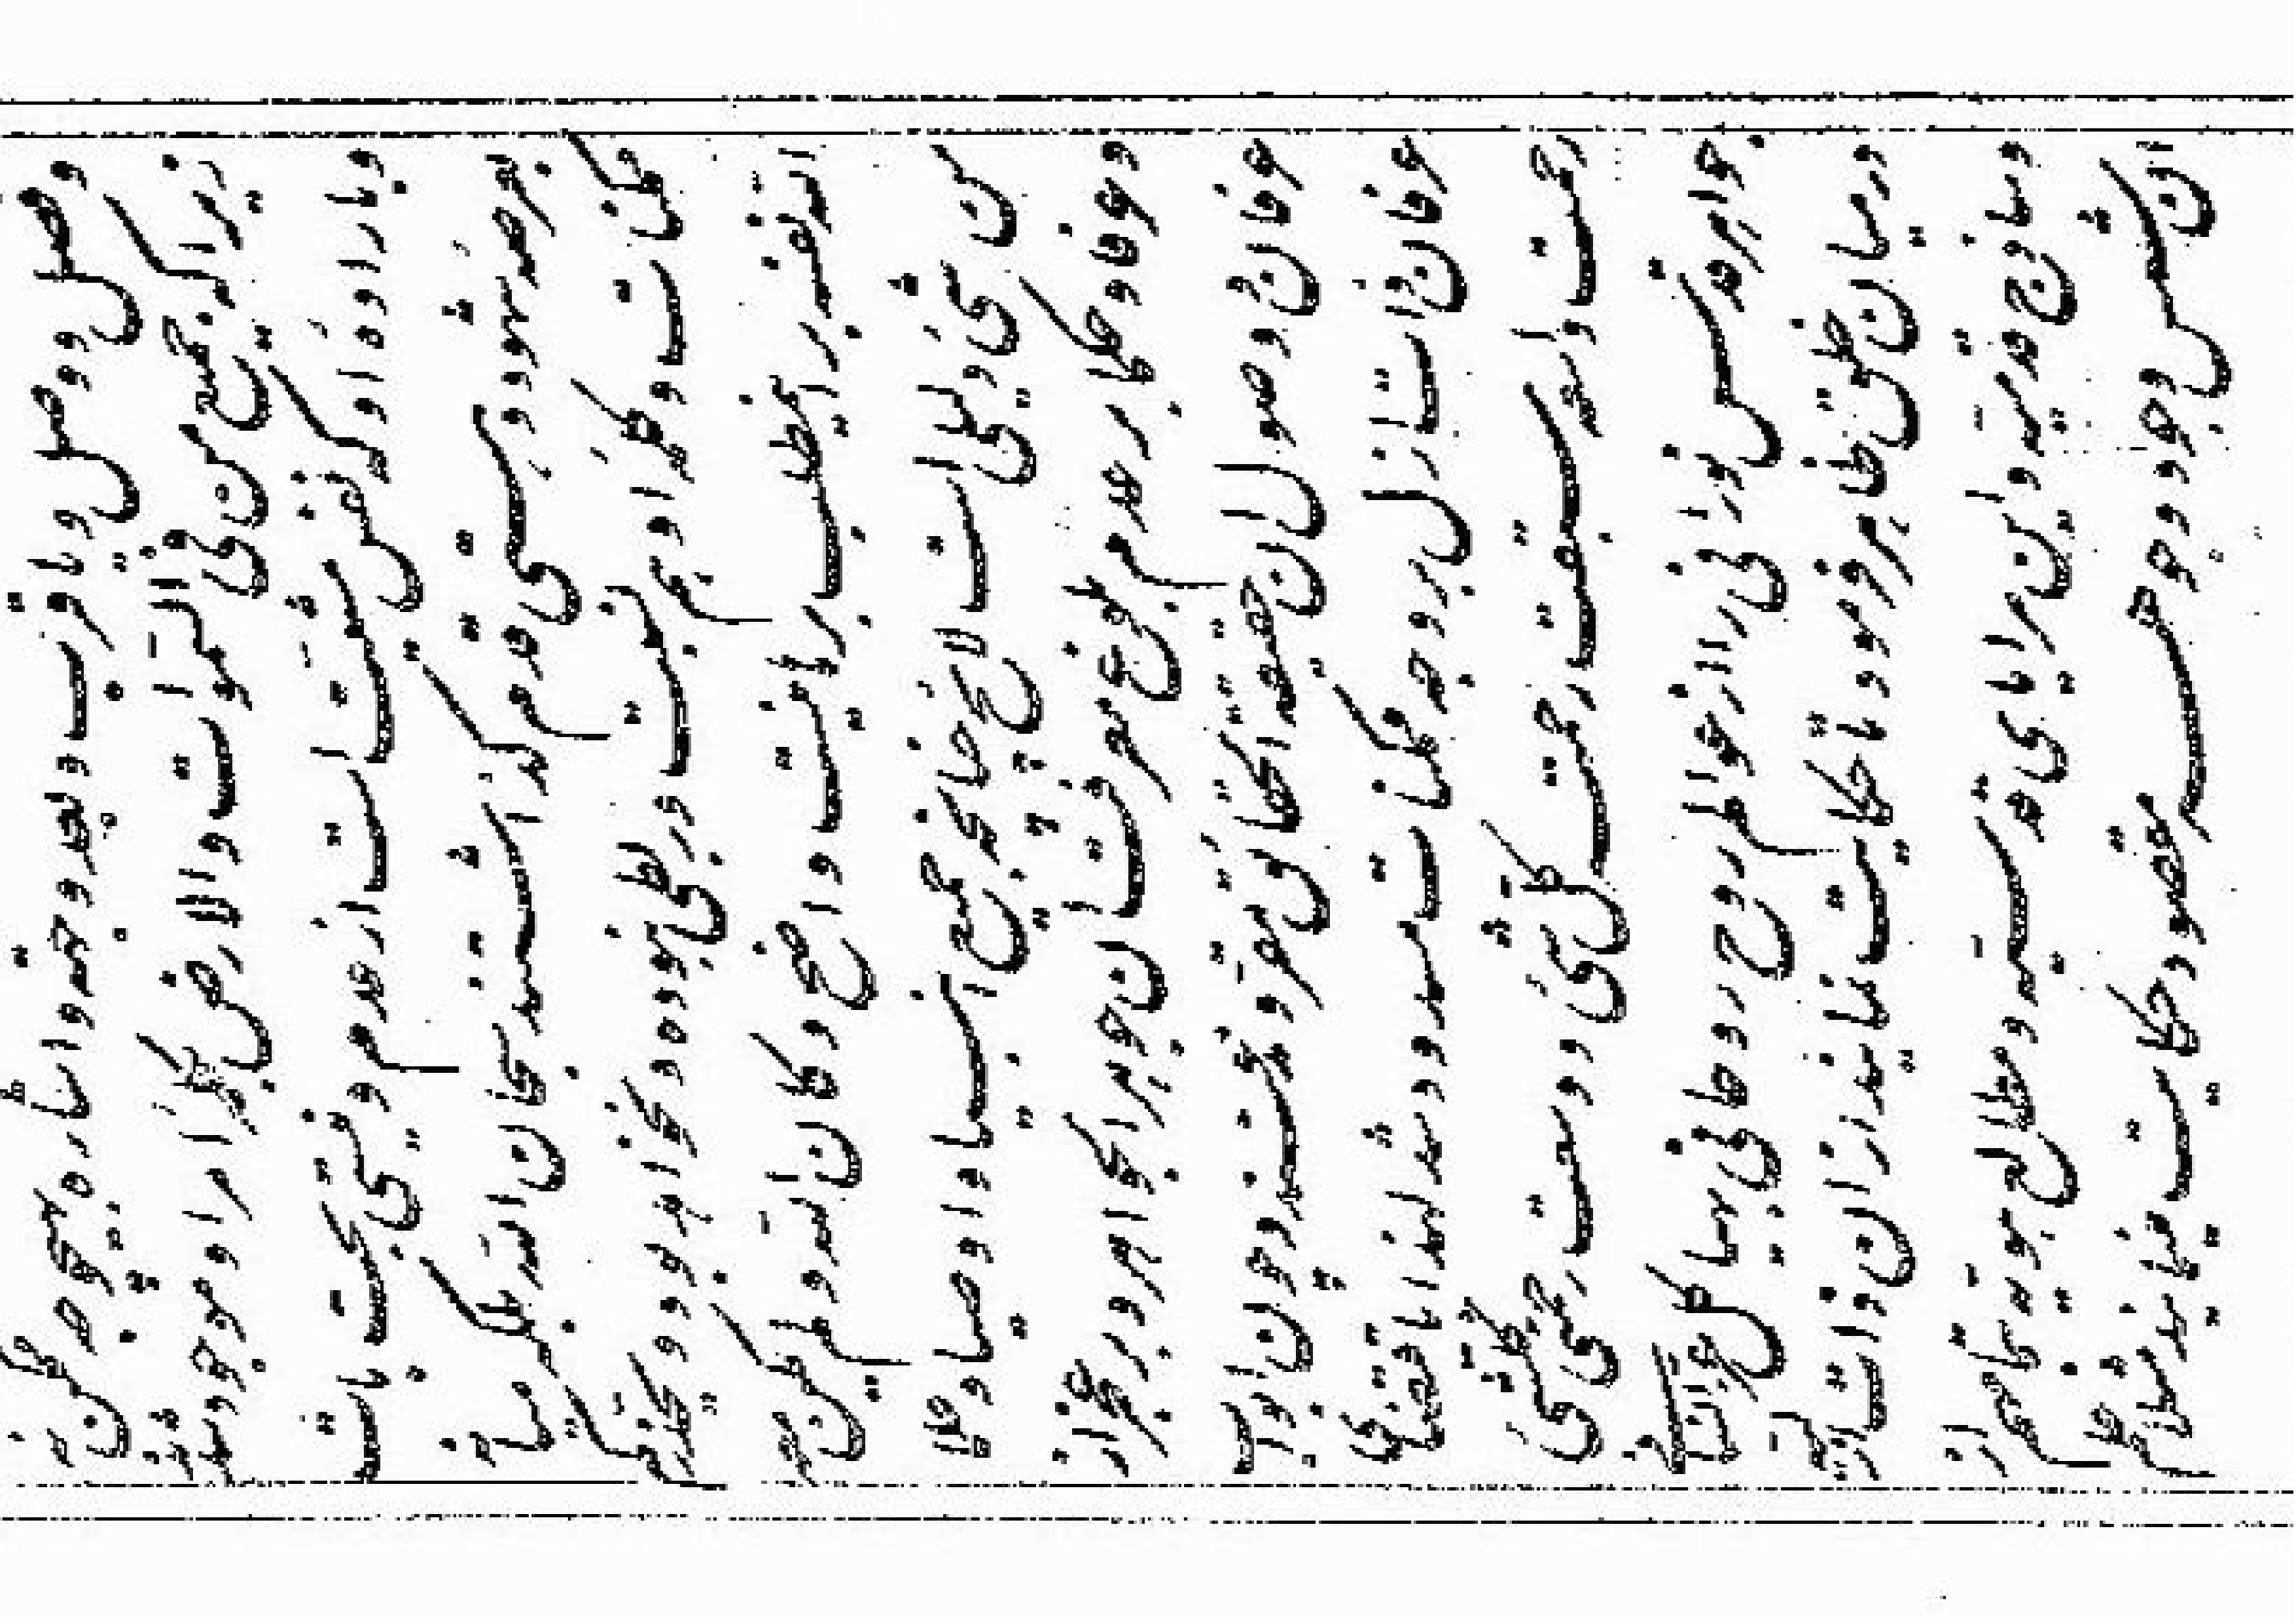 و فصل و وصل و یا قرب و بعد و جهت و اشاره بهیچوجه ممکن نه
زیرا که جمیع من فی السّموات والارض بکلمهٔ امر او موجود شدند
و باراده او که نفس مشیّت است از عدم و نیستی بحت بات
بعرصه شهود و هستی قدم گذاشتند سبحان اللّه بلکه میانه
ممکنات و کلمهٔ او هم نسبت و ربطی نبوده و نخواهد بود و یحذّرکم
اللّه نفسه بر این مطلب برهانیست واضح و کان اللّه و لم یکن معه
من شئ دلیلی است لائح چنانچه جمیع انبیا و اوصیا و علما
و عرفا و حکما بر عدم بلوغ معرفت آن جوهر الجواهر و بر عجز از
عرفان و وصول آن حقیقة الحقائق مقرّ و مذعنند و چون ابواب
عرفان ذات ازل بر وجه ممکنات مسدود شد لهذا باقتضای
رحمت واسعه سبقت رحمته کلّ شئ و وسعت رحمتی کلّ شئ
جواهر قدس نورانی را از عوالم روح روحانی بهیاکل عزّ انسانی
در میان خلق ظاهر فرمود تا حکایت نمایند از آن ذات ازلیّه
و ساذج قدمیّه و این مرایای قدسیّه و مطالع هویّه بتمامهم از
آن شمس وجود و جوهر مقصود حکایت مینمایند مثلا علم